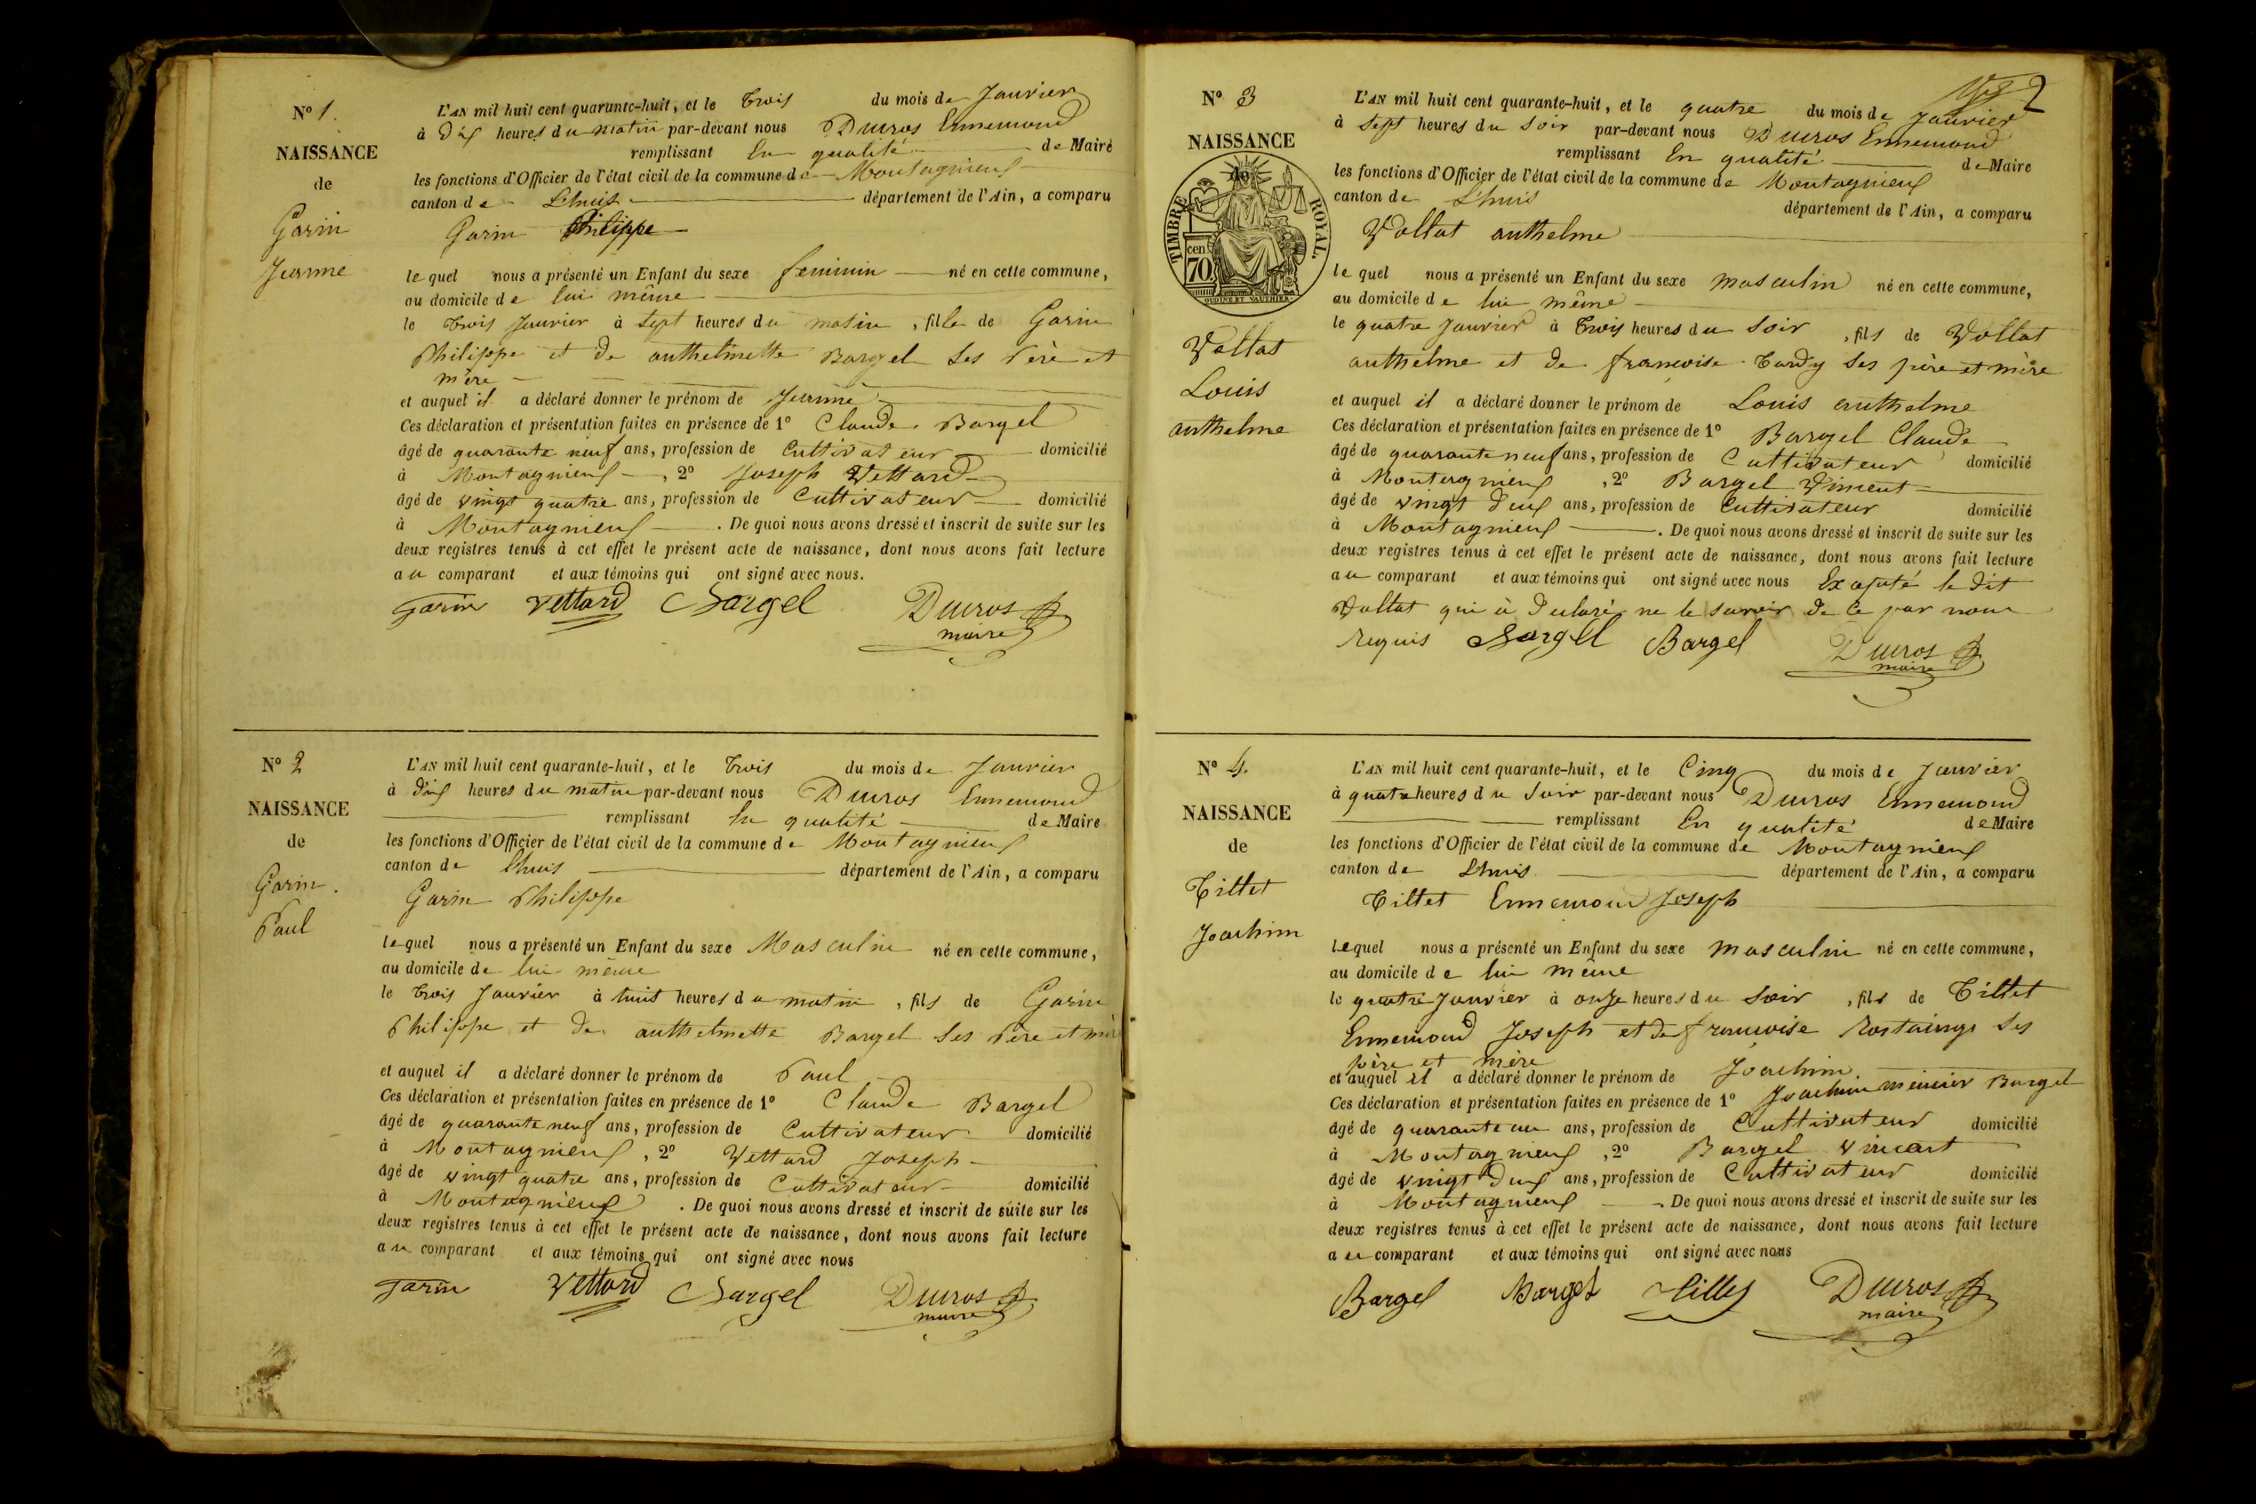 N° 1.
NAISSANCE
de
Garin
Jeanne
L'AN mil huit cent quarante-huit, et le trois du mois de Janvier
à dix heures du matin par-devant nous Ducros Ennemond
remplissant En qualité de Maire
les fonctions d'Officier de l'état civil de la commune de Montagnieux
canton de Lhuis département de l'Ain, a comparu
Garin Philippe
lequel nous a présenté un Enfant du sexe feminin né en cette commune,
au domicile de lui même
le trois Janvier à sept heures du matin, fille de Garin
Philippe et de anthelmette Bargel ses Père et
mère
et auquel il a déclaré donner le prénom de Jeanne
Ces déclaration et présentation faites en présence de 1° Claude Bargel
âgé de quarante neuf ans, profession de Cultivateur domicilié
à Montagnieux, 2° Joseph Vettard
âgé de vingt quatre ans, profession de Cultivateur domicilié
à Montagnieux. De quoi nous avons dressé et inscrit de suite sur les
deux registres tenus à cet effet le présent acte de naissance, dont nous avons fait lecture
au comparant et aux témoins qui ont signé avec nous.
Garin Vettard Bargel Ducros
maire
N° 2
NAISSANCE
de
Garin.
Paul
L'AN mil huit cent quarante-huit, et le trois du mois de Janvier
à dix heures du matin par-devant nous Ducros Ennemond
remplissant En qualité de Maire
les fonctions d'Officier de l'état civil de la commune de Montagnieux
canton de Lhuis département de l'Ain, a comparu
Garin Philippe
lequel nous a présenté un Enfant du sexe Masculin né en cette commune,
au domicile de lui même
le trois Janvier à huit heures du matin, fils de Garin
Philippe et de anthelmette Bargel ses Père et mère
et auquel il a déclaré donner le prénom de Paul
Ces déclaration et présentation faites en présence de 1° Claude Bargel
âgé de quarante neuf ans, profession de Cultivateur domicilié
à Montagnieux, 2° Vettard Joseph
âgé de vingt quatre ans, profession de Cultivateur domicilié
à Montagnieux. De quoi nous avons dressé et inscrit de suite sur les
deux registres tenus à cet effet le présent acte de naissance, dont nous avons fait lecture
au comparant et aux témoins qui ont signé avec nous
Garin Vettard Bargel Ducros
maire
2
N° 3
NAISSANCE
de
TIMBRE ROYAL.
cen
70
OUDINE ET VAUTHIER
Vollat
Louis
anthelme
L'AN mil huit cent quarante-huit, et le quatre du mois de Janvier
à sept heures du soir par-devant nous Ducros Ennemond
remplissant En qualité de Maire
les fonctions d'Officier de l'état civil de la commune de Montagnieux
canton de Lhuis département de l'Ain, a comparu
Vollat anthelme
lequel nous a présenté un Enfant du sexe masculin né en cette commune,
au domicile de lui même
le quatre Janvier à trois heures du soir, fils de Vollat
anthelme et de francoise Tardy ses père et mère
et auquel il a déclaré donner le prénom de Louis anthelme
Ces déclaration et présentation faites en présence de 1° Bargel Claude
âgé de quarante neuf ans, profession de Cultivateur domicilié
à Montagnieux, 2° Bargel Vincent
âgé de vingt deux ans, profession de Cultivateur domicilié
à Montagnieux. De quoi nous avons dressé et inscrit de suite sur les
deux registres tenus à cet effet le présent acte de naissance, dont nous avons fait lecture
au comparant et aux témoins qui ont signé avec nous Exepté le dit
Vollat qui à declaré ne le savoir de ce par nous
requis Bargel Bargel Ducros
maire
N° 4.
NAISSANCE
de
Tillet
Joachim
L'AN mil huit cent quarante-huit, et le Cinq du mois de Janvier
à quatre heures du soir par-devant nous Ducros Ennemond
remplissant En qualité de Maire
les fonctions d'Officier de l'état civil de la commune de Montagnieux
canton de Lhuis département de l'Ain, a comparu
Tillet Ennemond Joseph
Lequel nous a présenté un Enfant du sexe masculin né en cette commune,
au domicile de lui même
le quatre Janvier à onze heures du soir, fils de Tillet
Ennemond Joseph et de francoise Rostaings ses
père et mère
et auquel il a déclaré donner le prénom de Joachim
Ces déclaration et présentation faites en présence de 1° Joachim Bargel
âgé de quarante un ans, profession de Cultivateur domicilié
à Montagnieux, 2° Bargel Vincent
âgé de vingt deux ans, profession de Cultivateur domicilié
à Montagnieux. De quoi nous avons dressé et inscrit de suite sur les
deux registres tenus à cet effet le présent acte de naissance, dont nous avons fait lecture
au comparant et aux témoins qui ont signé avec nous
Bargel Bargel Tillet Ducros
maire